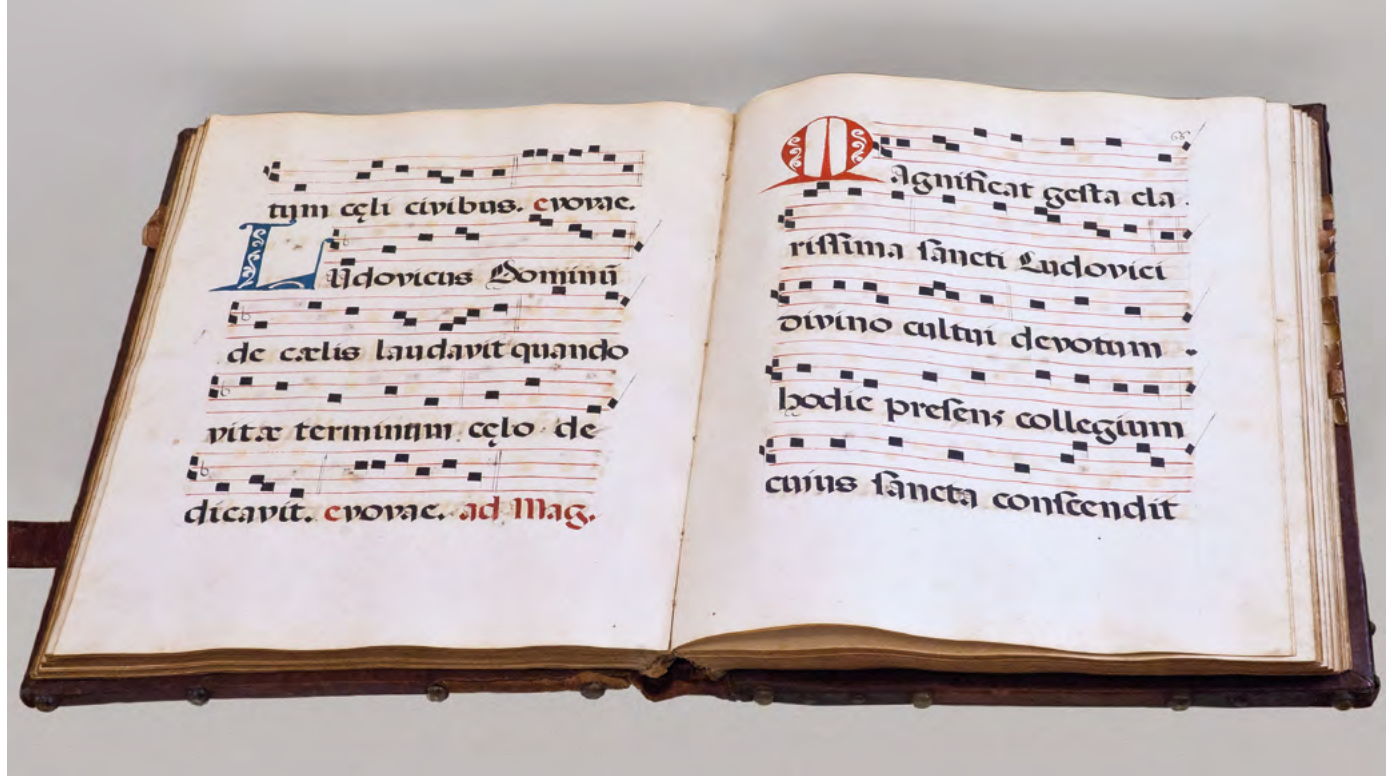 tum cęli civibus. evovae.
Ludovicus Dominū
de cælis laudavit quando
vitæ terminum cęlo de
dicavit. evovae. ad Mag.
Magnificat gesta cla
rissima sancti Ludovici
divino cultui devotum
hodie presens collegium
cuius sancta conscendit